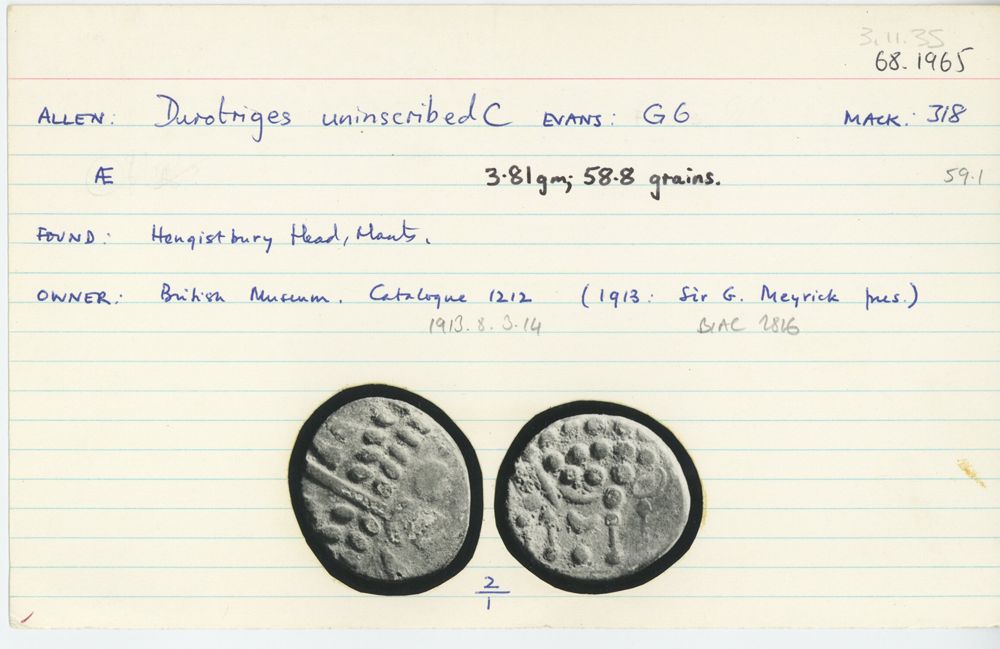 3.11.35
68.1965
ALLEN: Durotriges uninscribed C EVANS: G6 MACK: 318
Æ 3.81gm; 58.8 grains. 59.1
FOUND: Hengistbury Head, Hants.
OWNER: British Museum. Catalogue 1212 (1913: Sir G. Meyrick pres.)
1913.8.3.14 BIAC
2
1